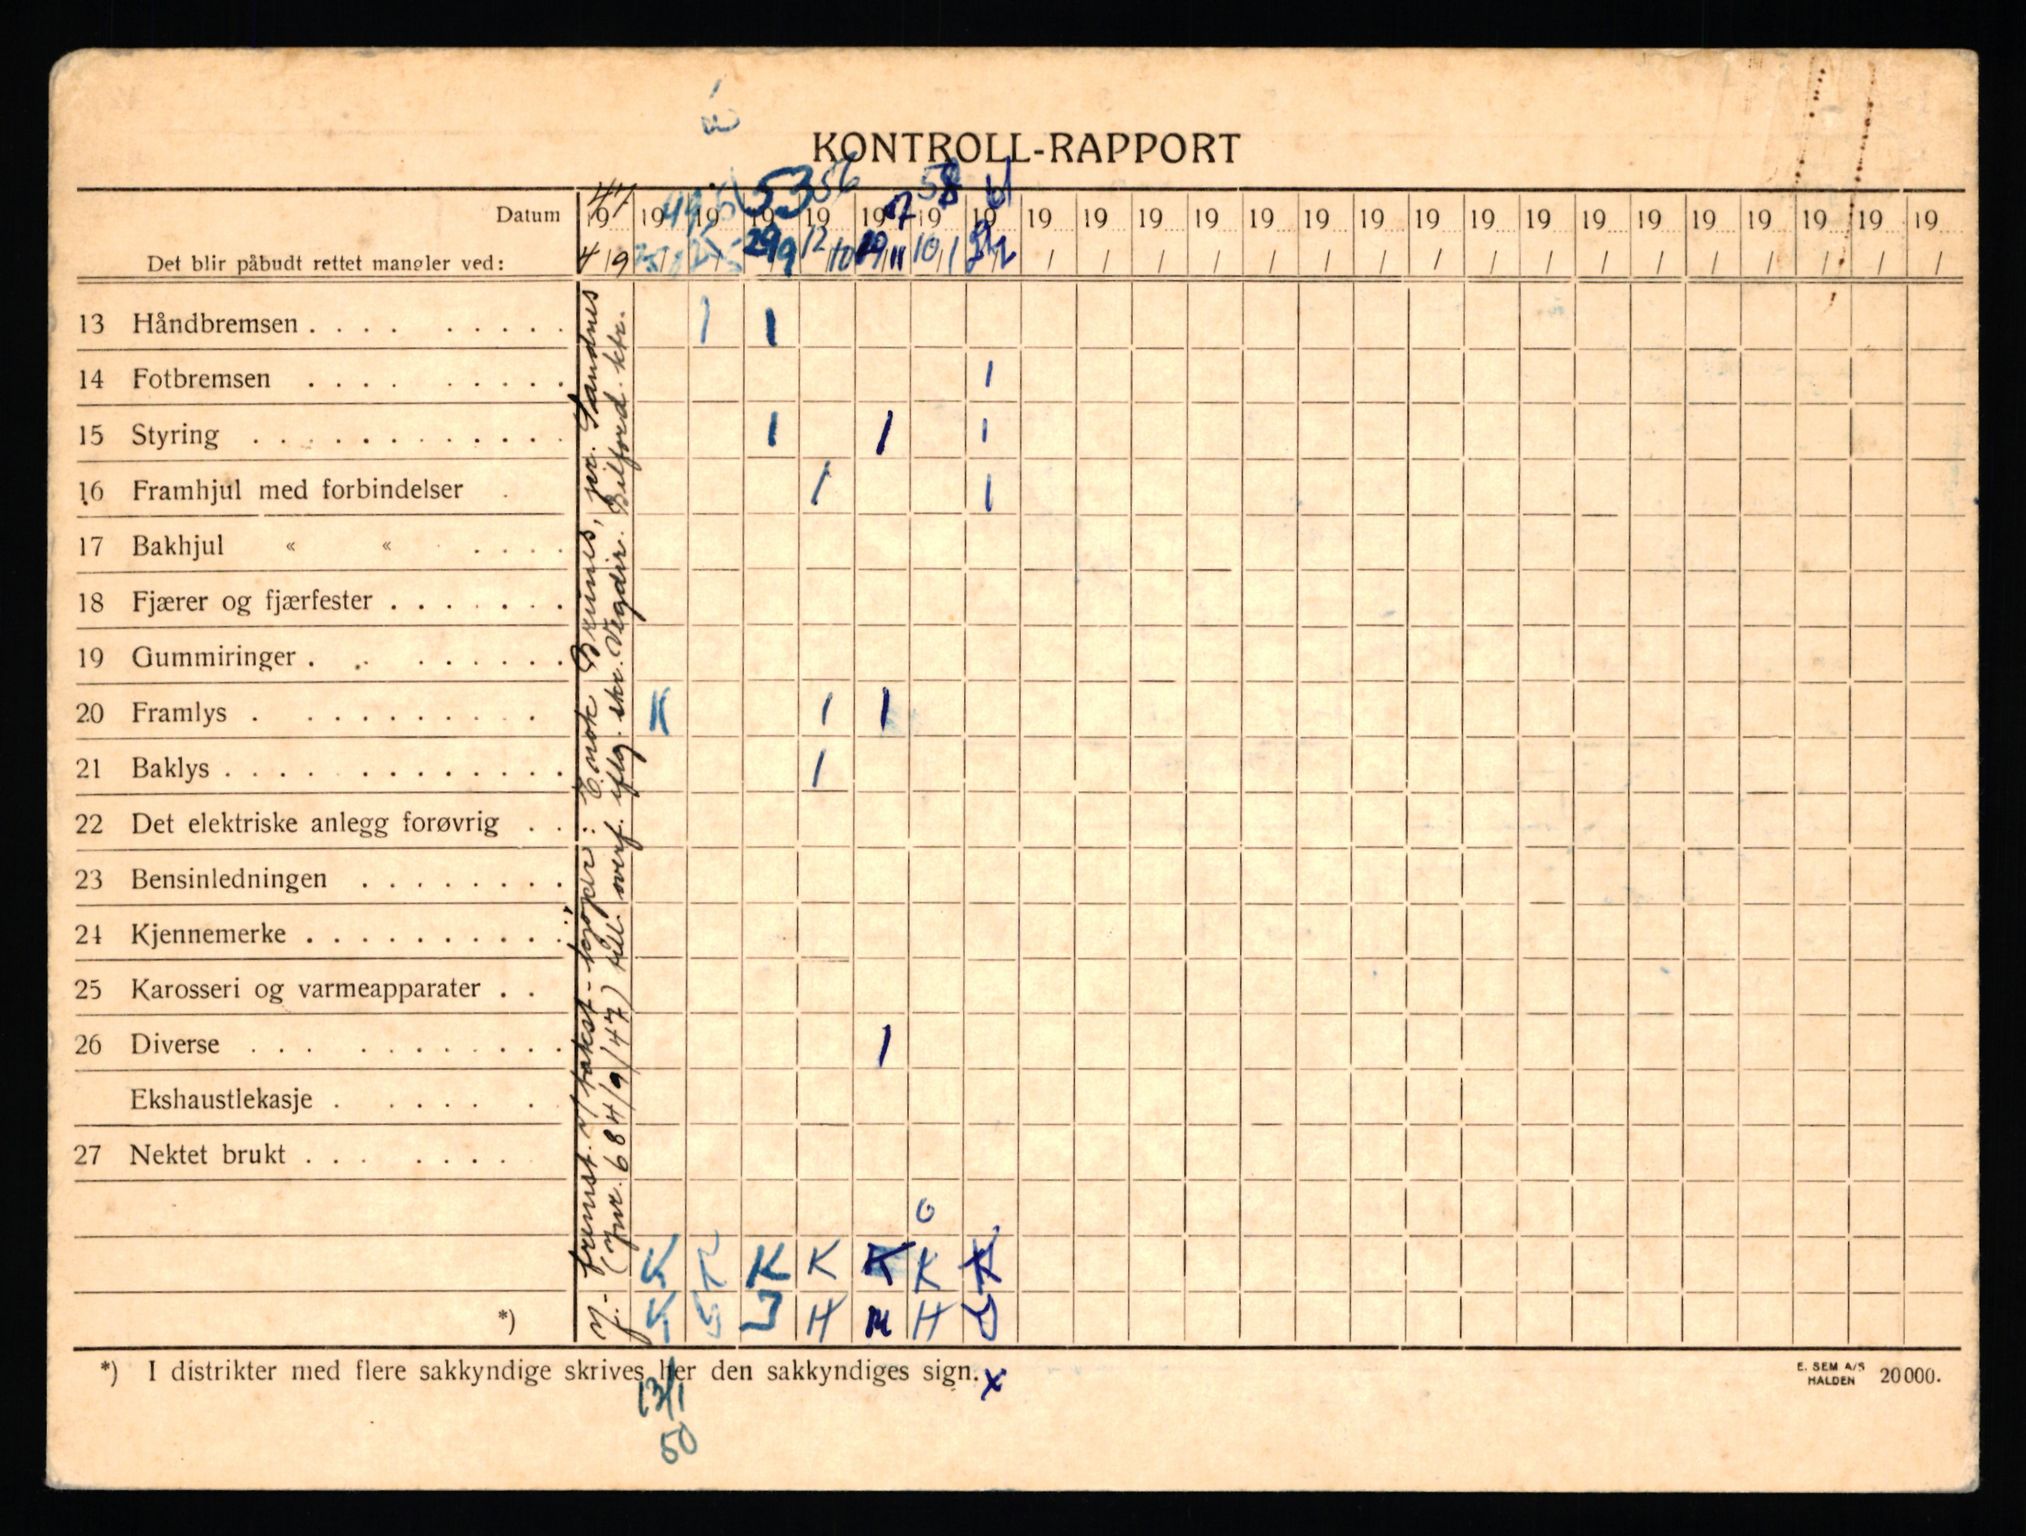 KONTROLL-RAPPORT
53 56 58
Datum 19 19 19 19 19 19 19 19 19 19 19 19 19 19 19 19 19 19 19 19 19 19 19 19 19
47 49 7
Det blir påbudt rettet mangler ved: 4/9 29/9 12/10 10/1
13 Håndbremsen . . . . . . . . . 1 1
14 Fotbremsen . . . . . . . . . 1
15 Styring . . . . . . . . . . . . 1 1 1
16 Framhjul med forbindelser . 1 1
17 Bakhjul « « . . . .
18 Fjærer og fjærfester . . . . . . .
19 Gummiringer . . . . . . . .
20 Framlys . . . . . . . . . K 1 1
21 Baklys . . . . . . . . . . . . 1
22 Det elektriske anlegg forøvrig . .
23 Bensinledningen . . . . . . . .
24 Kjennemerke . . . . . . . . . .
25 Karosseri og varmeapparater . .
26 Diverse . . . . . . . . . . . 1
Ekshaustlekasje . . . . . .
27 Nektet brukt . . . . . . .
fremst. v/ takst - kjøper: Enok Brunes, pr. Sandnes
(Jnr. 684/9/47) till. overf. iflg. skr. Vegdir. Bilford. ktr.
K K K K K K K
*) K J H M H
*) I distrikter med flere sakkyndige skrives her den sakkyndiges sign. x
13/1
50
E. SEM A/S
HALDEN 20000.